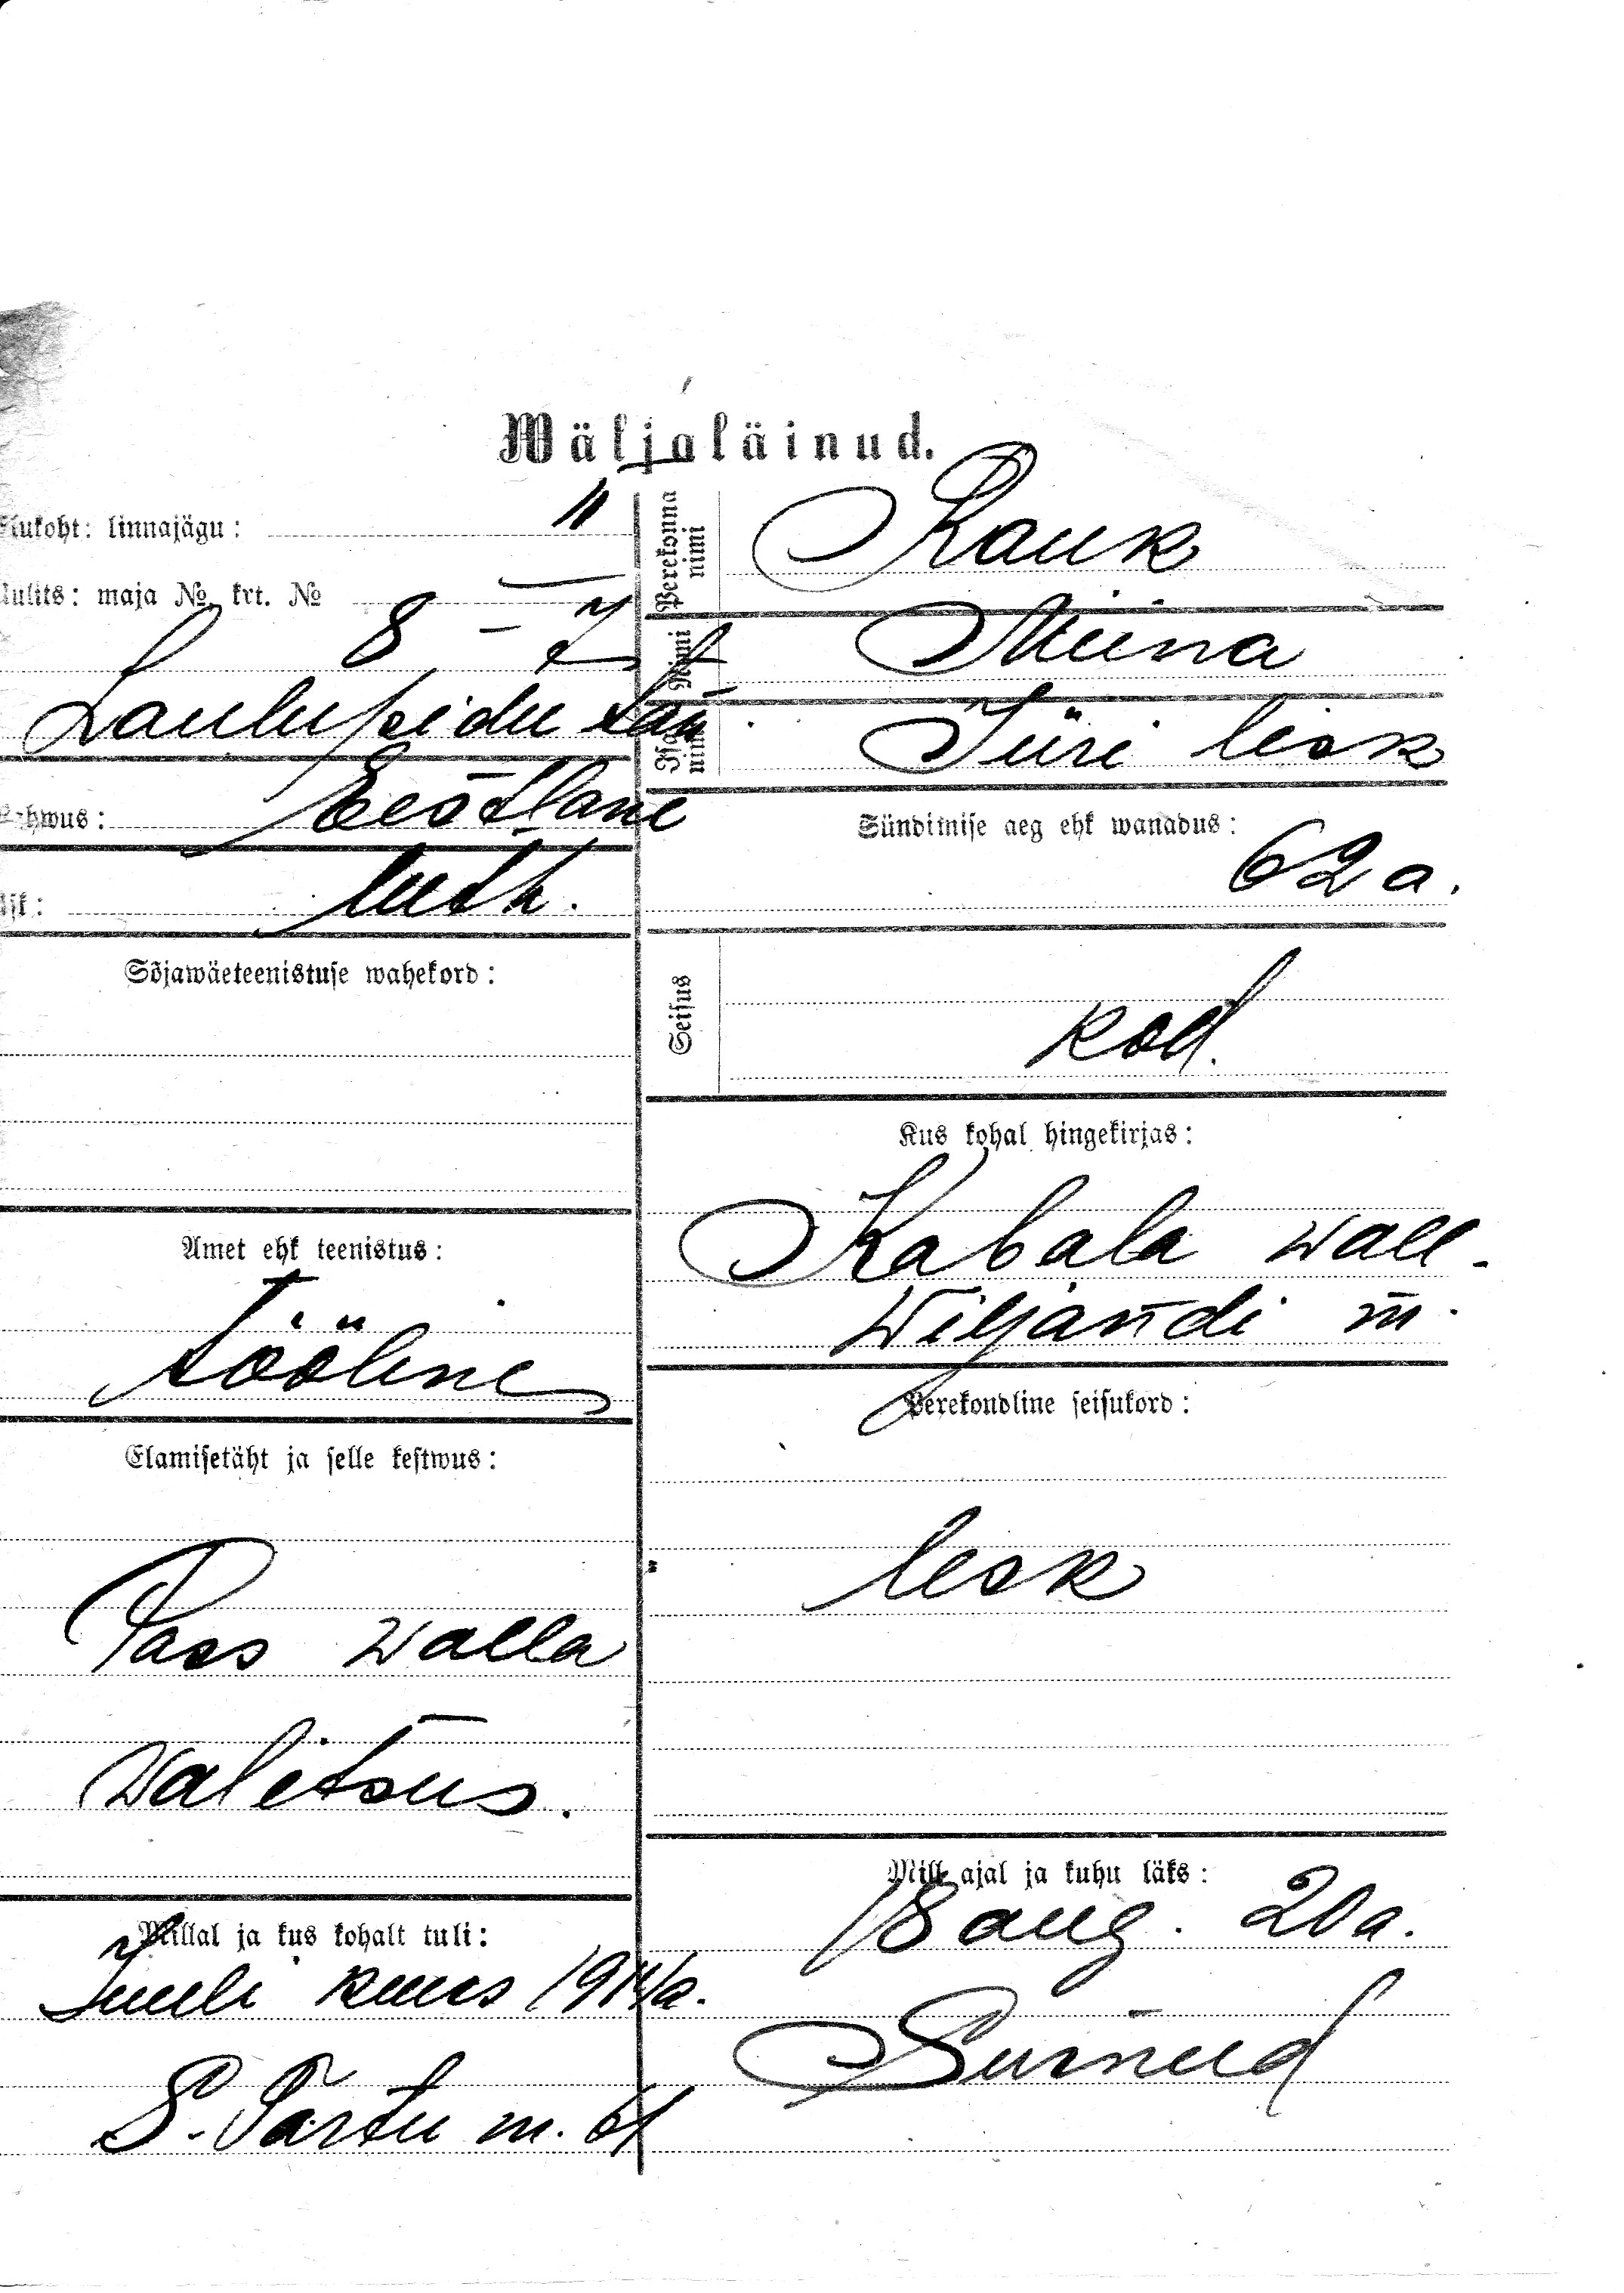 Wäljaläinud.
Elukoht: linnajägu: II
Uulits: maja № krt. №
8 – 7
Laulupidu tän
Rahwus: Eestlane
Usk: luth.
Sõjawäeteenistuse wahekord:
Amet ehk teenistus:
Tööline
Elamisetäht ja selle kestwus:
Pass walla
walitsus.
Millal ja kus kohalt tuli:
Juuli kuus 1914a.
S. Tartu m. 61
Perekonna nimi Rauk
Nimi Miina
Isa nimi Jüri lesk
Sündimise aeg ehk wanadus:
62 a.
Seisus
kod.
Kus kohal hingekirjas:
Kabala wall.
Wiljandi m.
Perekondline seisukord:
lesk
Mill ajal ja kuhu läks:
18 aug. 20 a.
Surnud